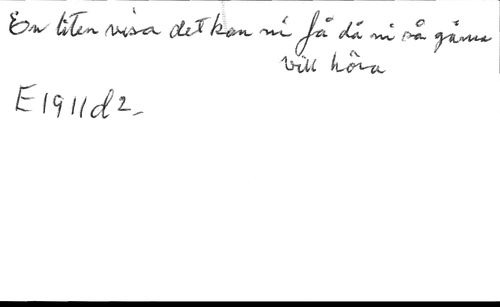 En liten visa det kan ni få då ni så gärna
vill höra
E 1911d2.